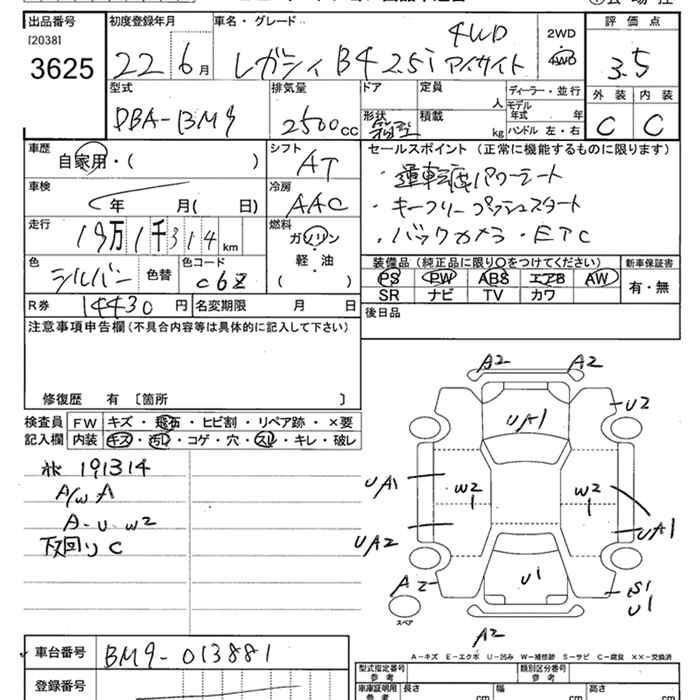 出品番号
[2038]
3625
初度登録年月
22 6月
車名・グレード
レガシィ B4 2.5i アイサイト 4WD
2WD
4WD
評価点
3.5
外装 内装
C C
型式
DBA-BM9
排気量
2500cc
ドア
形状
定員
人
積載
kg
ディーラー・並行
モデル年式 年
ハンドル 左・右
車歴
自家用・( )
シフト
AT
車検
年 月( 日)
冷房
AAC
走行
19万1千314km
燃料
ガソリン
軽・油
( )
色
シルバー 色替
色コード
C6Z
R券 14430円
名変期限 月 日
セールスポイント (正常に機能するものに限ります)
・運転席パワーシート
・キーフリー プッシュスタート
・バックカメラ・ETC
装備品(純正品に限り○をつけてください)
PS PW ABS エアB AW
SR ナビ TV カワ
新車保証書
有・無
後日品
注意事項申告欄(不具合内容等は具体的に記入して下さい)
修復歴 有 〔箇所 〕
検査員記入欄
FW キズ・飛石・ヒビ割・リペア跡・×要
内装 キズ・汚れ・コゲ・穴・スレ・キレ・破レ
191314
A/W A
A-U W2
下廻り C
A2 A2
UA1
U2
UA1
W2
1
W2
1
UA1
UA2
A2
U1
S1
U1
スペア
A2
A-キズ E-エクボ U-凹み W-補修跡 S-サビ C-腐食 ××-交換済
車台番号
BM9-013881
登録番号
型式指定番号
参考
類別区分番号
参考
車庫証明用
参考
長さ cm
幅 cm
高さ cm